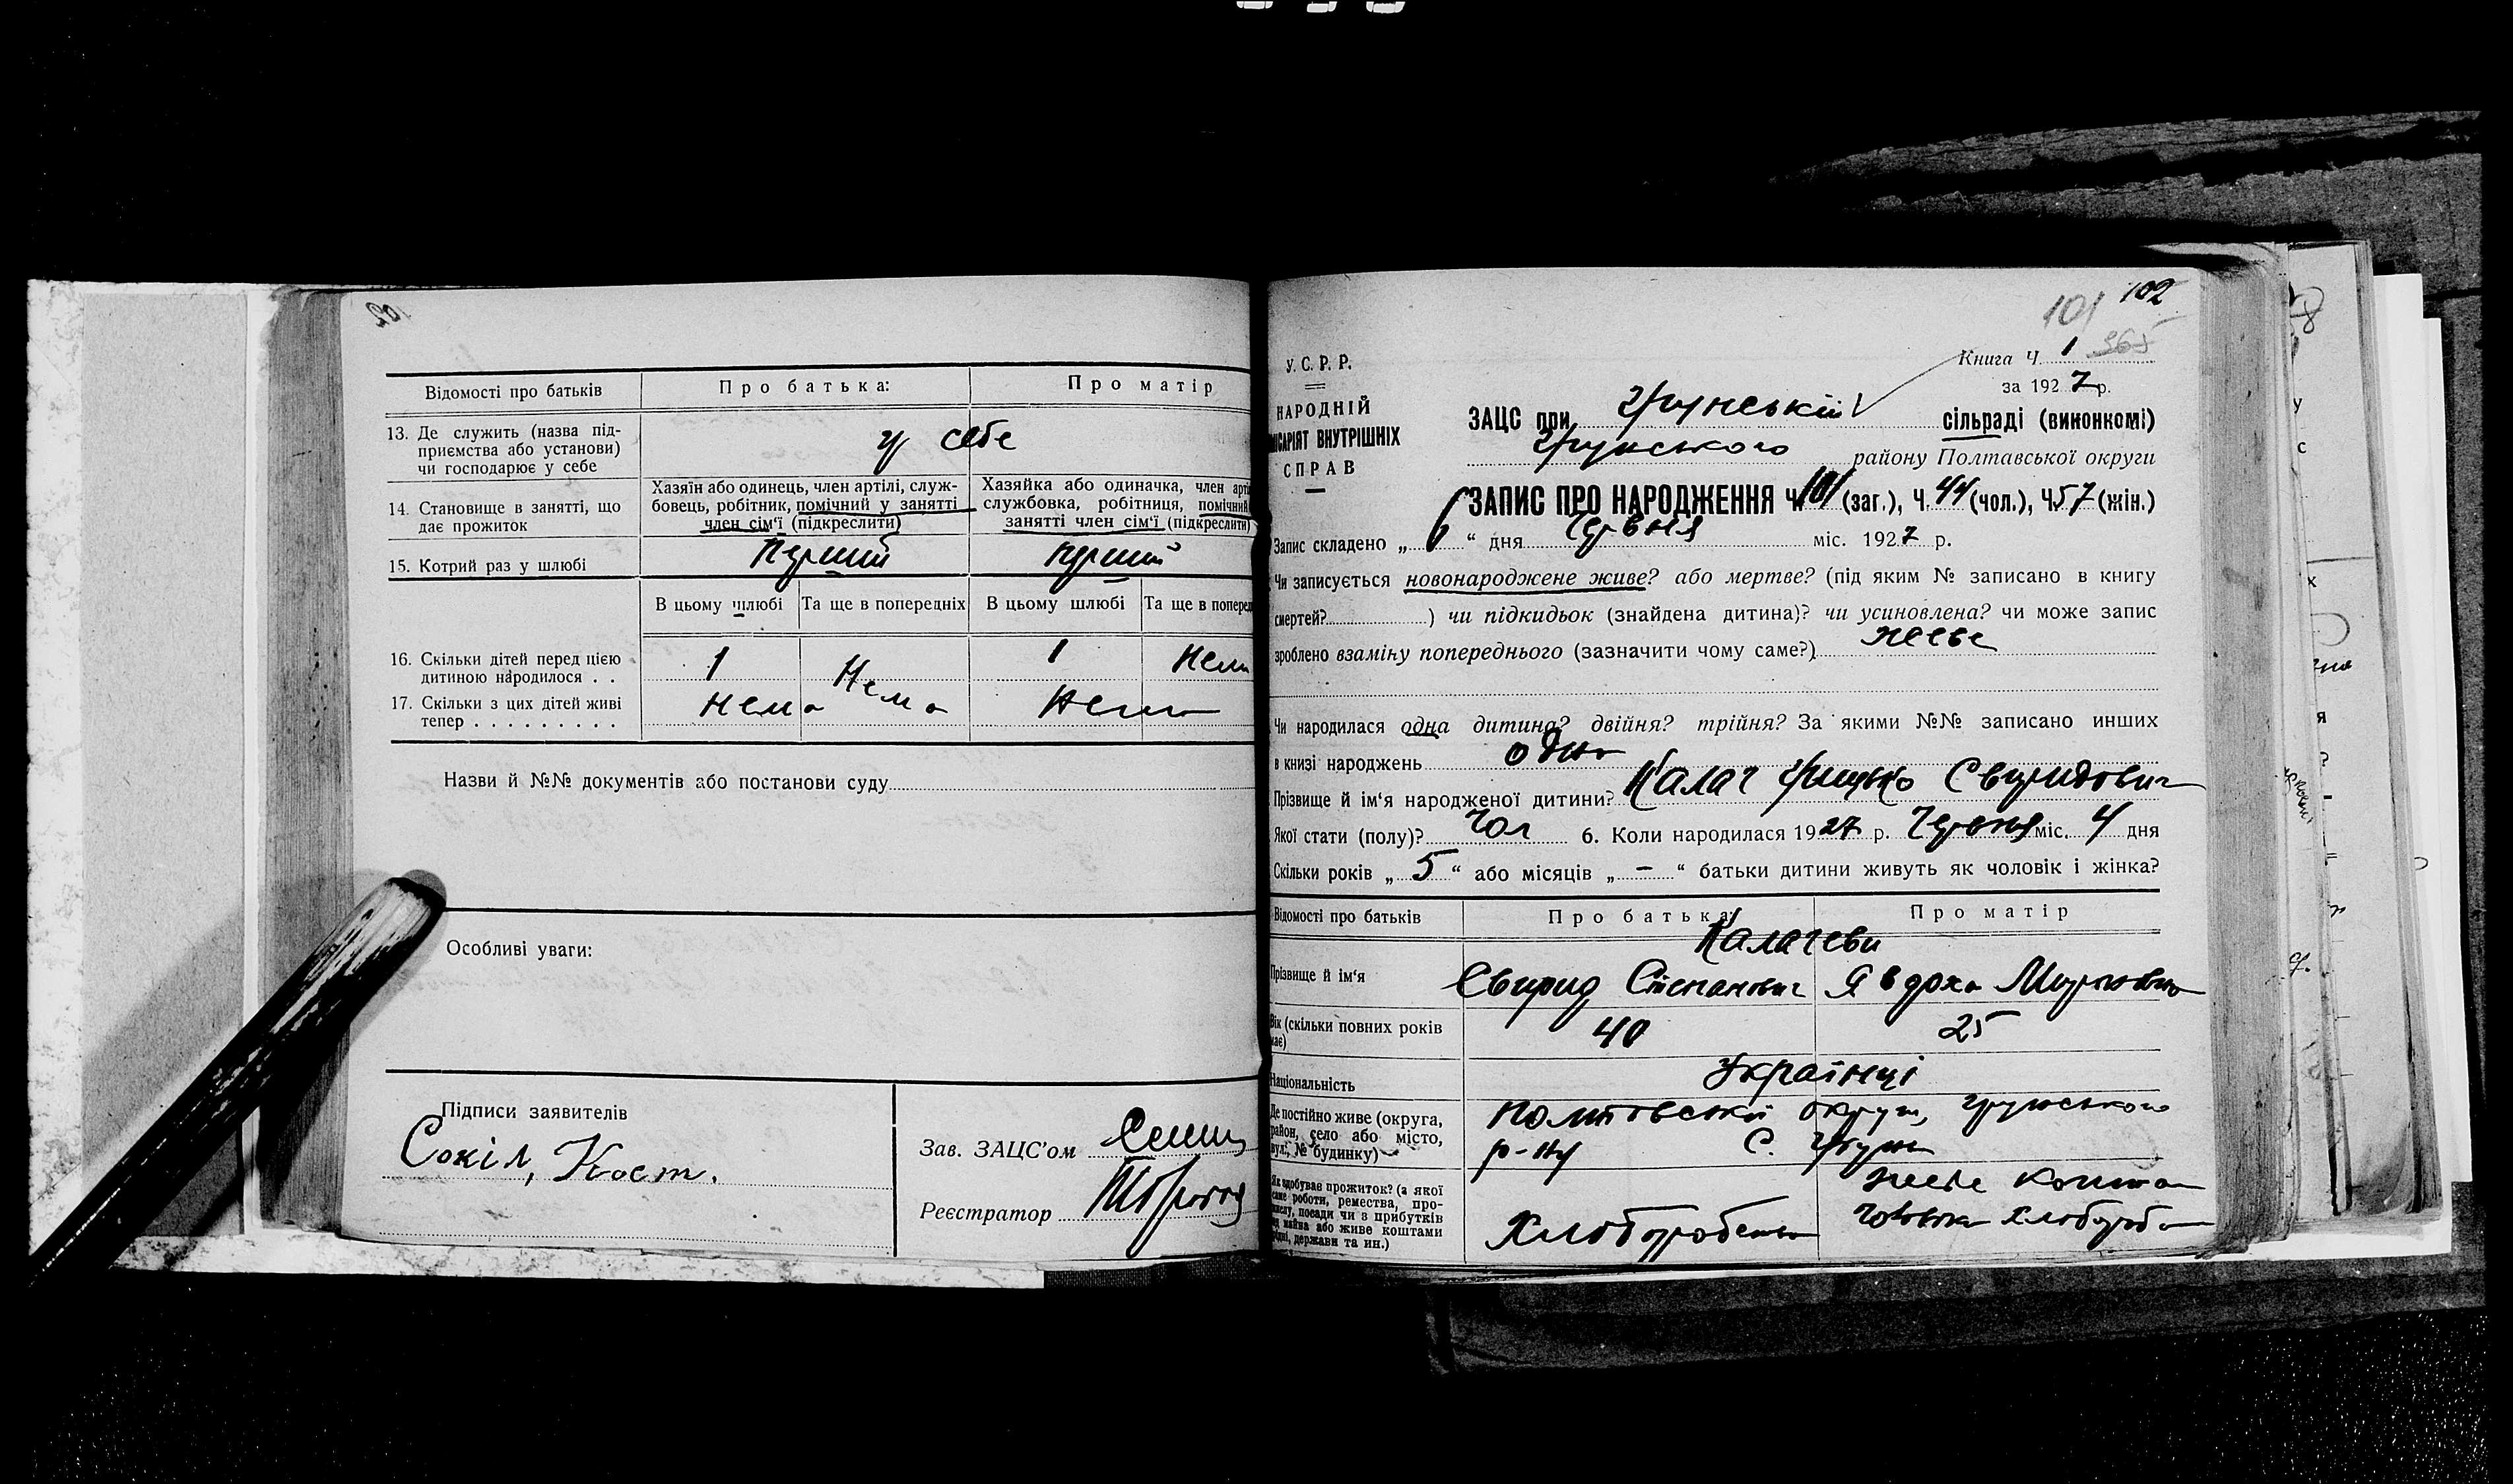 Відомості про батьків
Про батька:
Про матір
13. Де служить (назва під-
приємства або установи)
чи господарює у себе
у себе
14. Становище в занятті, що
дає прожиток
Хазяїн або одинець, член артілі, служ-
бовець, робітник, помічний у занятті
член сім'ї (підкреслити)
Хазяйка або одиначка, член арті
службовка, робітниця, помічний
занятті член сім'ї (підкреслити)
15. Котрий раз у шлюбі
перший
перший
В цьому шлюбі
Та ще в попередніх
В цьому шлюбі
Та ще в поперед
16. Скільки дітей перед цією
дитиною народилося . .
1
Нема
1
Нема
17. Скільки з цих дітей живі
тепер . . . . . . . . .
нема
Нема
Назви й №№ документів або постанови суду
Особливі уваги:
Підписи заявителів
Сокіл, Кост.
Зав. ЗАЦС'ом
Реєстратор
102
101
365
У. С. Р. Р.
НАРОДНІЙ
ІСАРІЯТ ВНУТРІШНІХ
СПРАВ
Книга Ч. 1
за 1927 р.
ЗАЦС при Грунській сільраді (виконкомі)
Грунського району Полтавської округи
ЗАПИС ПРО НАРОДЖЕННЯ Ч. 101 (заг.), Ч. 44 (чол.), Ч. 57 (жін.)
Запис складено „ 6 “ дня Червня міс. 1927 р.
Чи записується новонароджене живе? або мертве? (під яким № записано в книгу
смертей? ) чи підкидьок (знайдена дитина)? чи усиновлена? чи може запис
зроблено взаміну попереднього (зазначити чому саме?) живе
Чи народилася одна дитина? двійня? трійня? За якими №№ записано инших
в книзі народжень одна
Прізвище й ім'я народженої дитини? Калач Грицько Свиридович
Якої стати (полу)? Чол 6. Коли народилася 1927 р. Червня міс. 4 дня
Скільки років „ 5 “ або місяців „ - “ батьки дитини живуть як чоловік і жінка?
Відомості про батьків
Про батька:
Про матір
Калачеви
Прізвище й ім'я
Свирид Степанович
Явдоха
Вік (скільки повних років
має)
40
25
Національність
Українці
Де постійно живе (округа,
район, село або місто,
вул., № будинку)
Полтовської округи, Грунського
р-ну С. Грунь
Як здобуває прожиток? (з якої
саме роботи, ремества, про-
мислу, посади чи з прибутків
від майна або живе коштами
рідні, держави та ин.)
Хлоборобень
живе кошта
чоловіка хлобороба